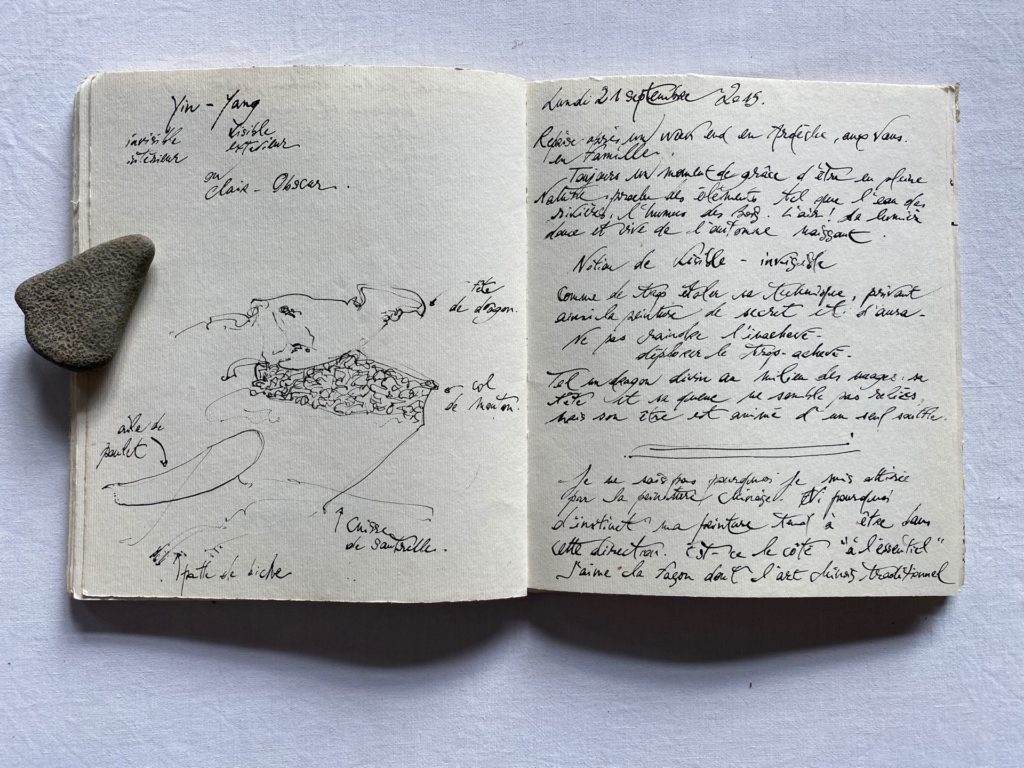 Yin - Yang
invisible visible
intérieur extérieur
ou
Clair - Obscur.
tête
de dragon.
col
de mouton.
aile de
poulet
cuisse
de sauterelle.
patte de biche
Lundi 21 septembre 2015.
Reprise après un week end en Ardèche, aux Vans.
en famille.
Toujours un moment de grâce d'être en pleine
Nature, proche des éléments tel que l'eau des
rivières, l'humus des bois. L'air! La lumière
douce et vive de l'automne naissant.
Notion de visible - invisible
Comme de trop étaler sa technique, privant
ainsi la peinture de secret et d'aura-
Ne pas craindre l'inachevé.
déplorer le trop-achevé.
Tel un dragon divin au milieu des nuages: sa
tête et sa queue ne semble pas reliées,
mais son être est animé d'un seul souffle.
Je ne sais pas pourquoi je suis attirée
par la peinture chinoise. Ni pourquoi
d'instinct ma peinture tend à être dans
cette direction. Est-ce le côté "à l'essentiel"
J'aime la façon dont l'art chinois traditionnel